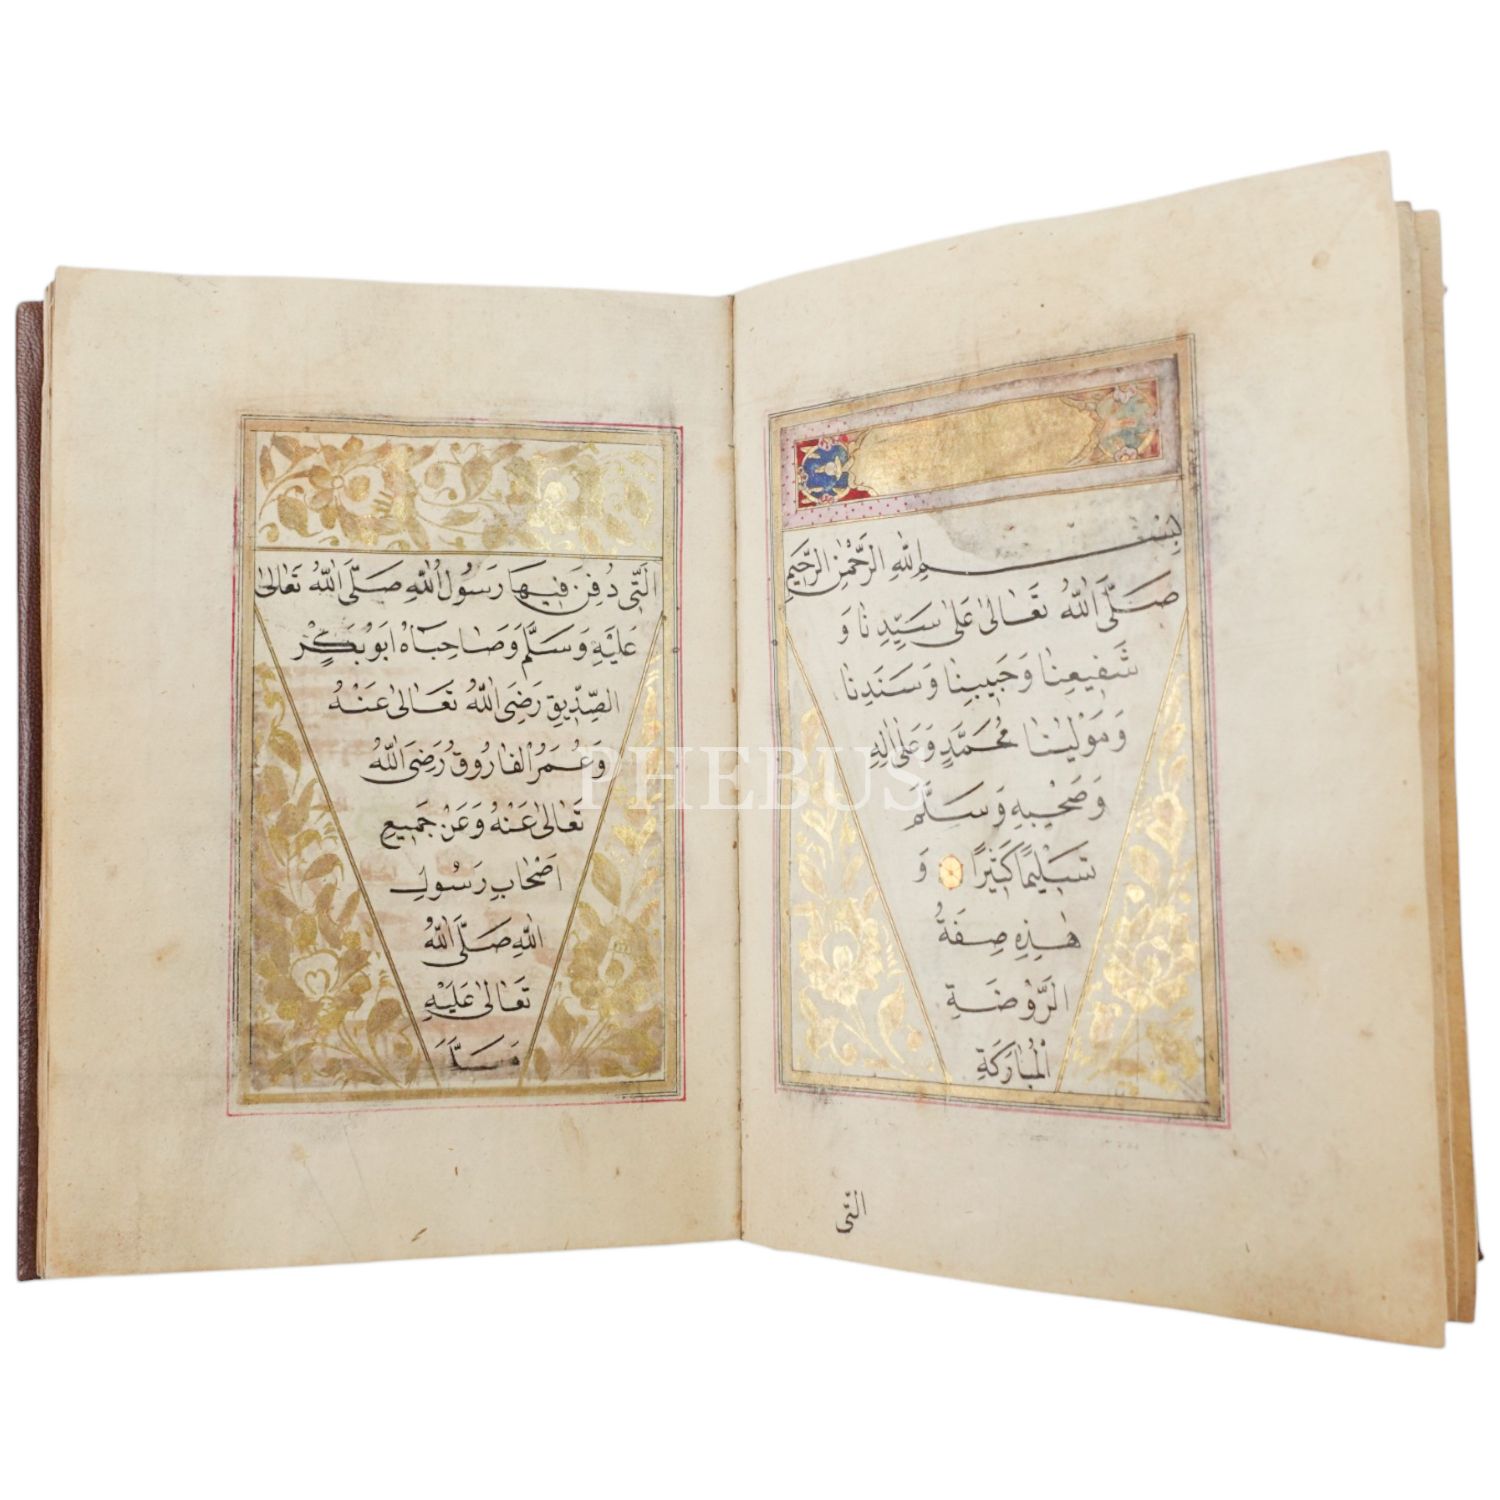 بِسْمِ اللّٰهِ الرَّحْمٰنِ الرَّحٖيمِ
صَلَّى اللّٰهُ تَعَالٰى عَلٰى سَيِّدِنَا وَ
شَفٖيعِنَا وَحَبٖيبِنَا وَسَنَدِنَا
وَمَوْلٰينَا مُحَمَّدٍ وَعَلٰى اٰلِهِ
وَصَحْبِهِ وَسَلَّمَ
تَسْلٖيمًا كَثٖيرًا وَ
هٰذِهِ صِفَةُ
الرَّوْضَةِ
الْمُبَارَكَةِ
الَّتٖى
الَّتٖى دُفِنَ فٖيهَا رَسُولُ اللّٰهِ صَلَّى اللّٰهُ تَعَالٰى
عَلَيْهِ وَسَلَّمَ وَصَاحِبَاهُ اَبُو بَكْرٍ
الصِّدّٖيقِ رَضِىَ اللّٰهُ تَعَالٰى عَنْهُ
وَعُمَرُ الْفَارُوقُ رَضِىَ اللّٰهُ
تَعَالٰى عَنْهُ وَعَنْ جَمٖيعِ
اَصْحَابِ رَسُولِ
اللّٰهِ صَلَّى اللّٰهُ
تَعَالٰى عَلَيْهِ
وَسَلَّمَ
PHEBUS